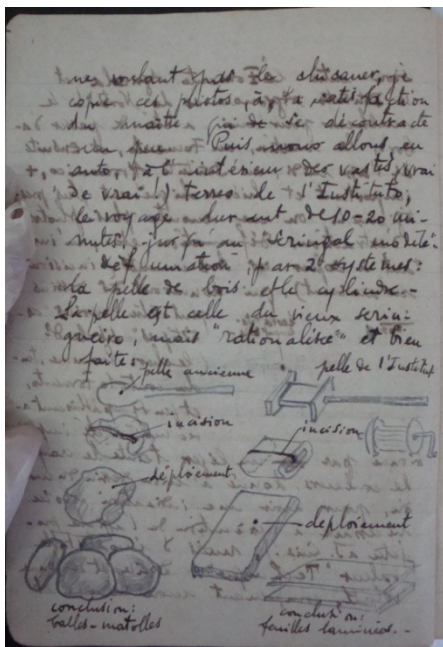 ne voulant pas le chicaner, je
copie ces photos, à la satisfaction
du maître qui se décontracte
un peu. Puis nous allons, en
auto, à l'intérieur des vastes, vrai
de vrai!) terres de l'Instituto,
le voyage durant de 10-20 mi-
nutes, jusqu'au Seringal modèle.
par 2 systèmes:
la pelle de bois et le cylindre -
La pelle est celle du vieux serin-
gueiro, mais "rationalisée" et bien
faite:
pelle ancienne
pelle de l'Institut
incision
incision
déploiement
déploiement
conclusion:
balles-matolles
conclusion:
feuilles laminées. -